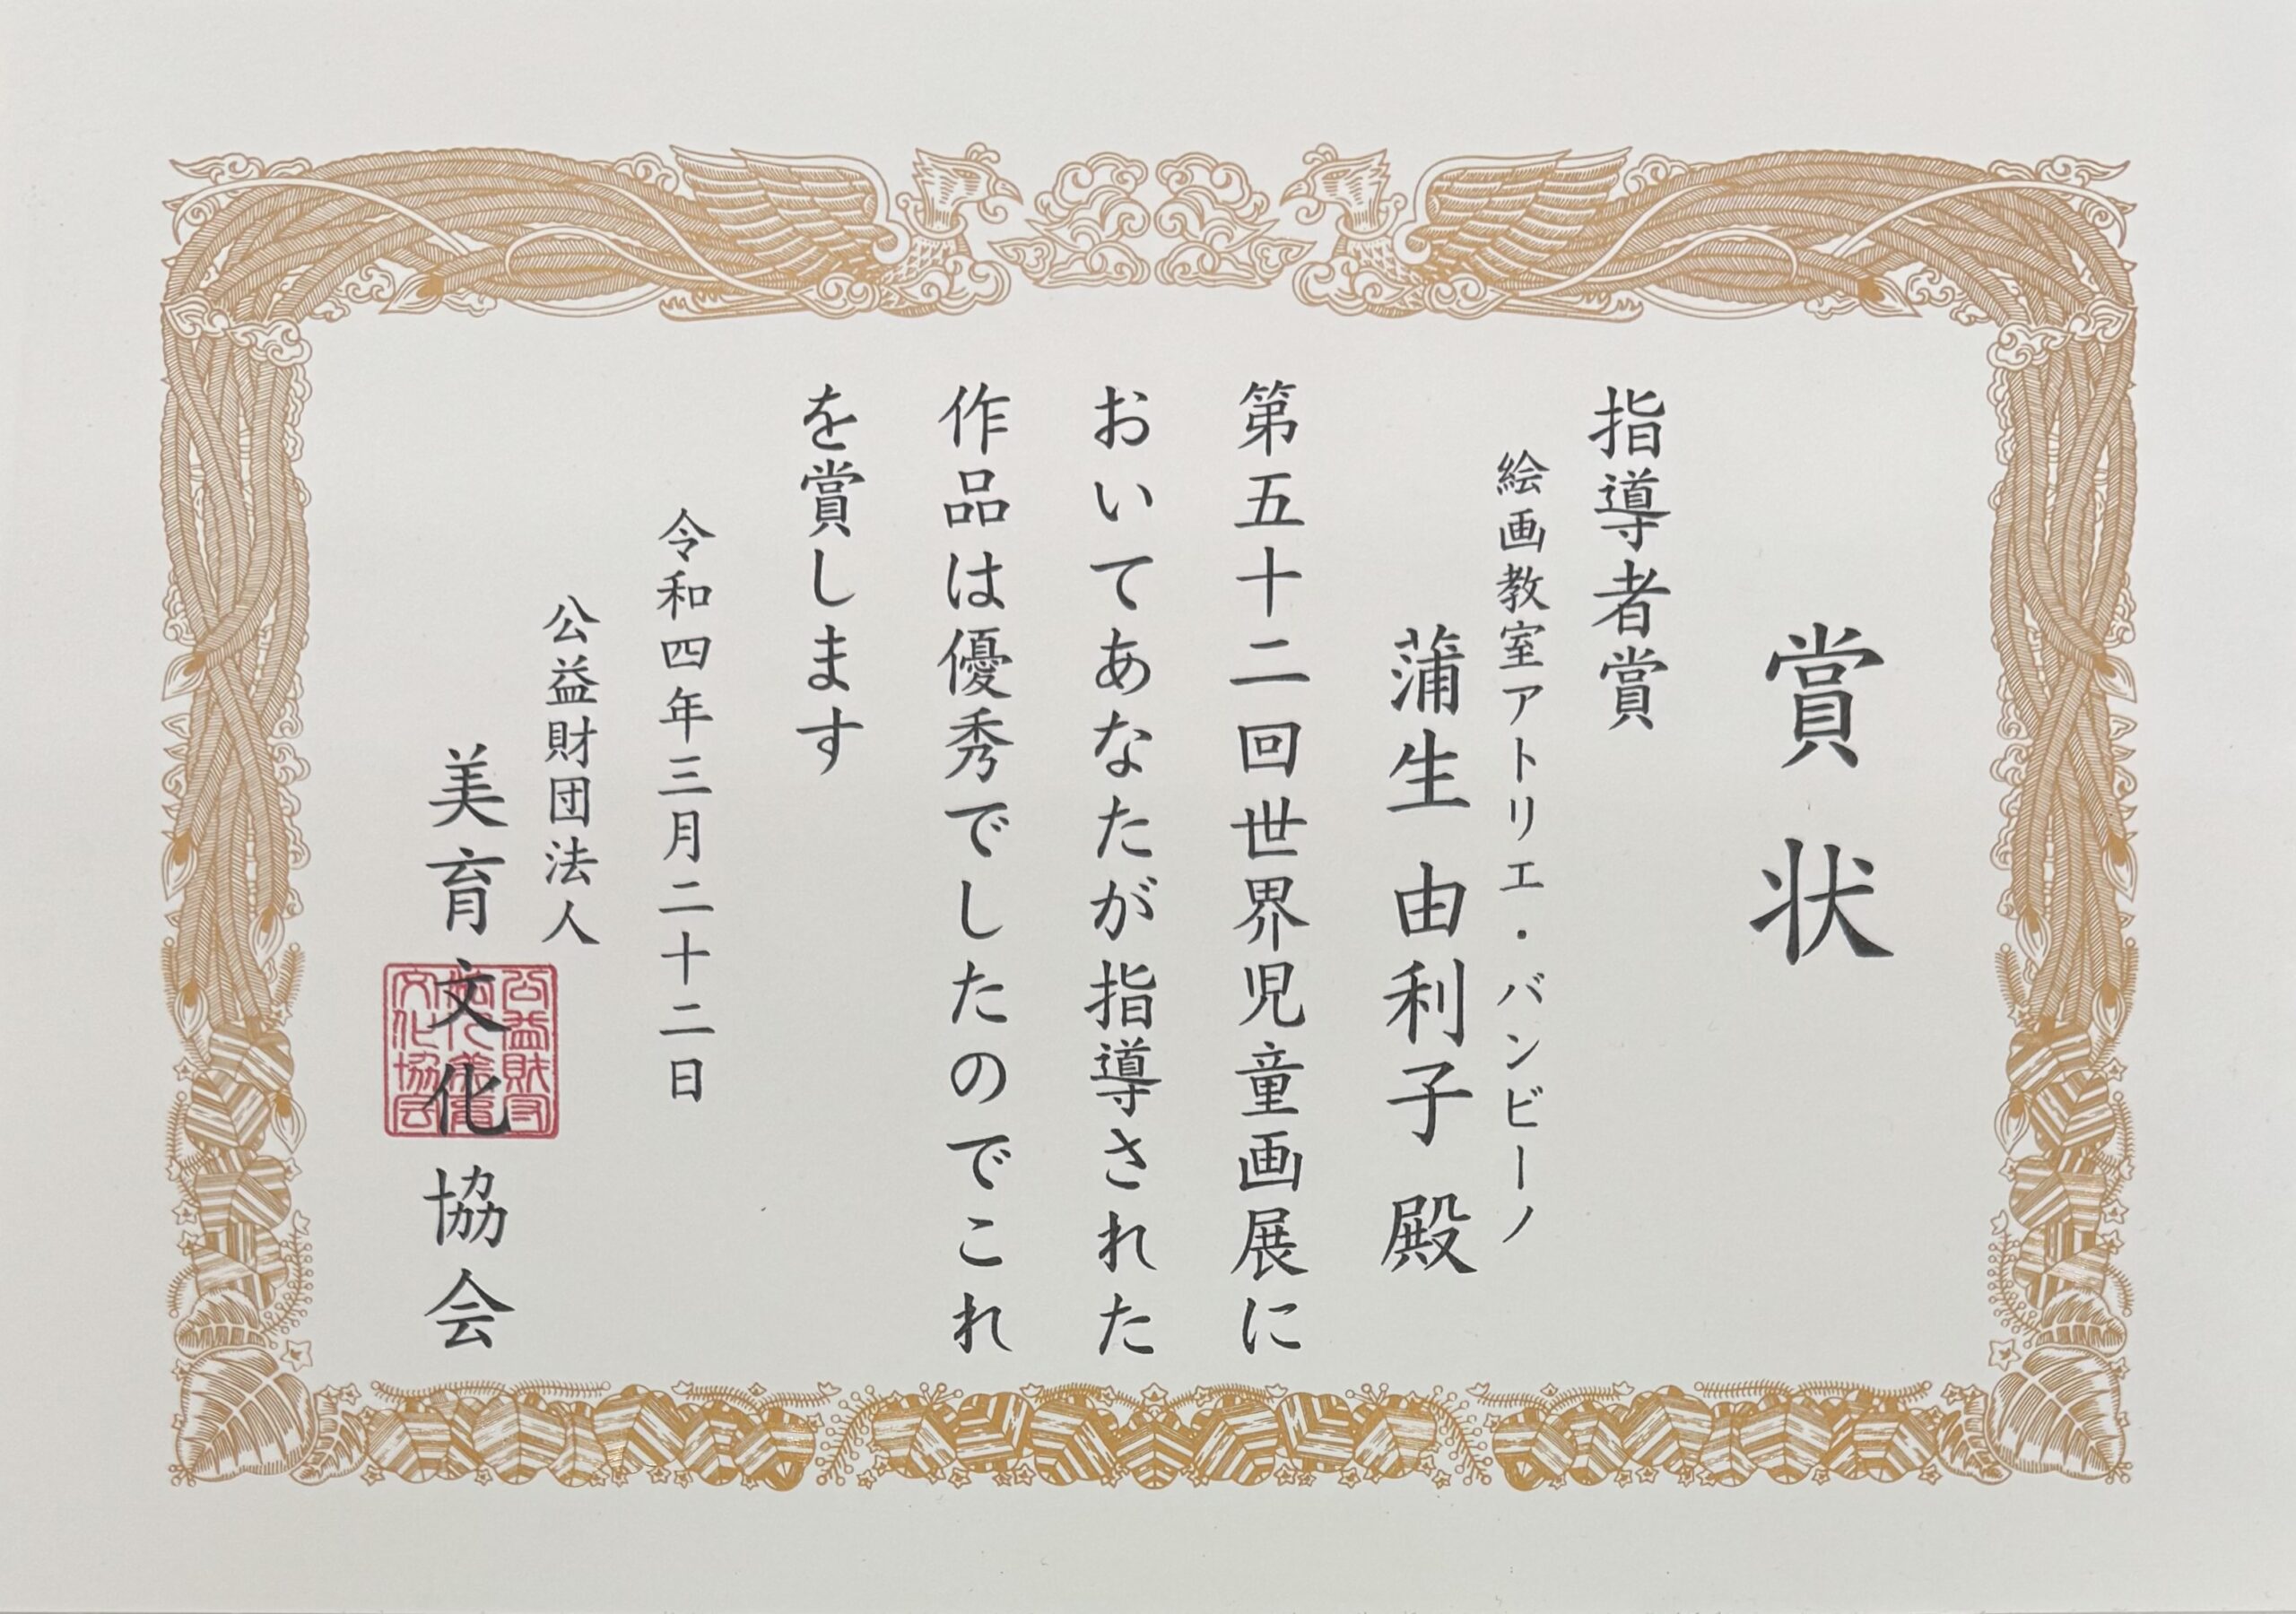 賞状
指導者賞
絵画教室アトリエ・バンビーノ
蒲生 由利子 殿
第五十二回世界児童画展に
おいてあなたが指導された
作品は優秀でしたのでこれ
を賞します
令和四年三月二十二日
公益財団法人
美育文化協会
公益財団
法人美育
文化協会